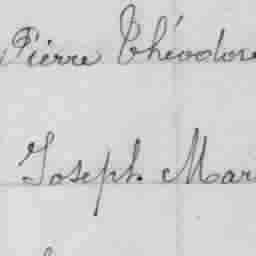 Pierre Théodore
Joseph Mar